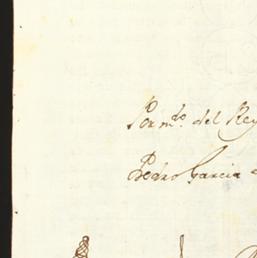 Por m.do del Rey
Pedro Garcia